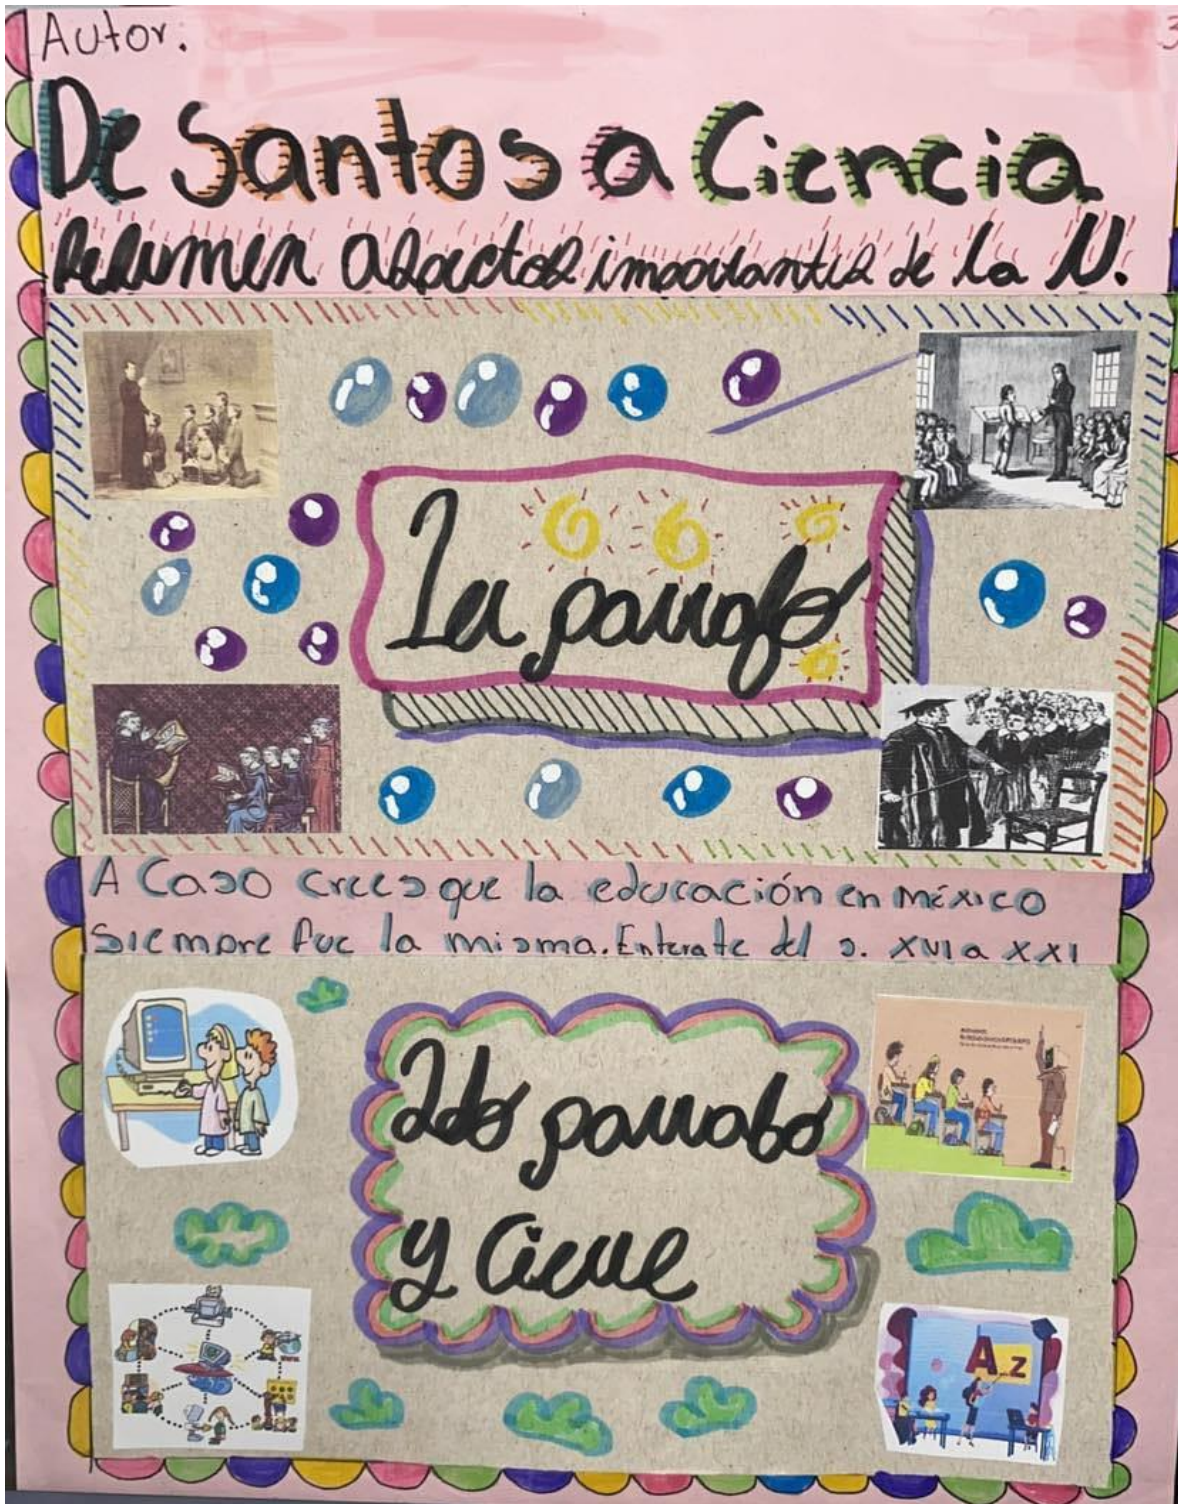 Autor:
De Santos a Ciencia
Resumen aspectos importantes de la N.
1er parrafo
A Caso crees que la educación en méxico
siempre fue la misma. Enterate del s. XVI a XXI
2do parrafo
y Cierre
A z